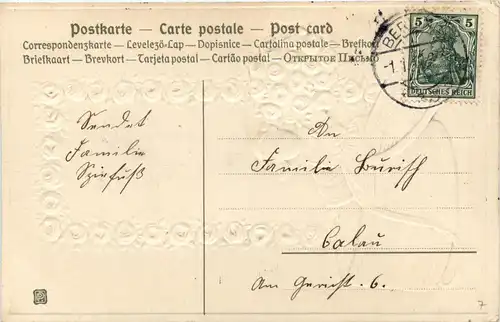 Postkarte — Carte postale — Post card
Correspondenzkarte — Levelező-Lap — Dopisnice — Cartolina postale — Brefkort
Briefkaart — Brevkort — Tarjeta postal — Cartão postal — Открытое Письмо
5 5
DEUTSCHES REICH
Sendet
Familie
An
Familie
Calau
Am Gericht. 6.
7